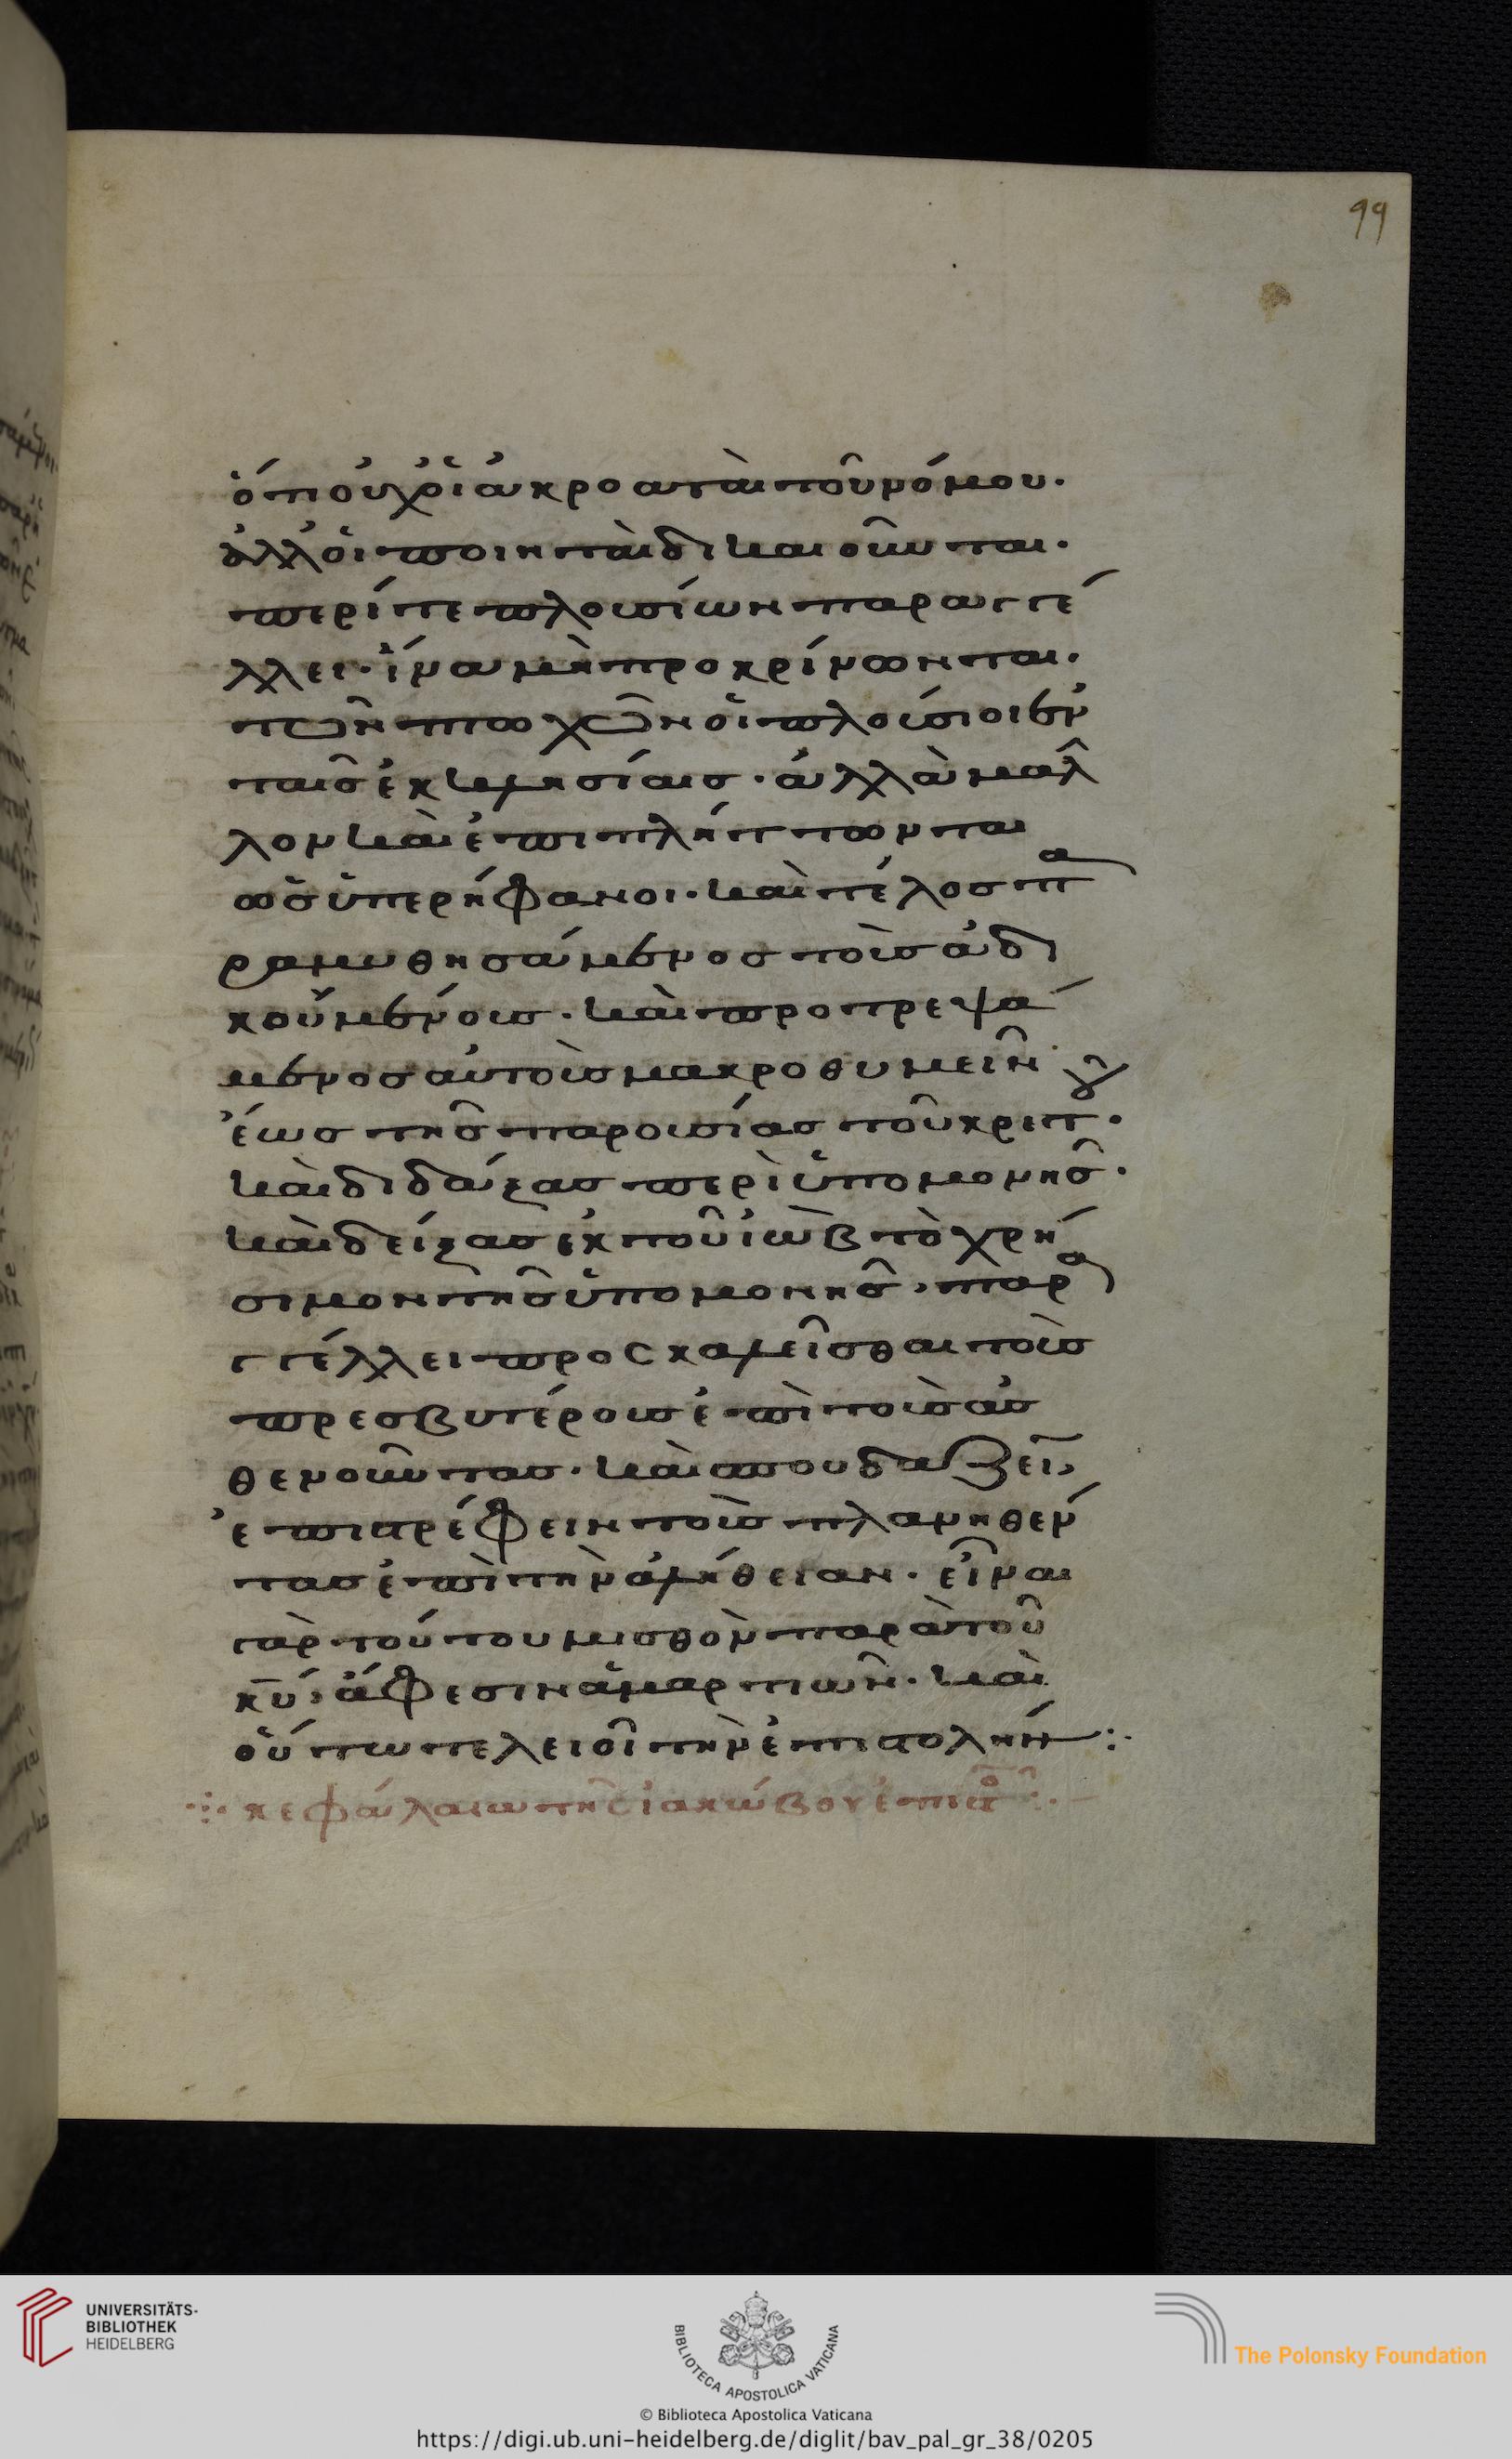 99
ὅτι οὐχ οἱ ἀκροαταὶ τοῦ νόμου·
ἀλλ' οἱ ποιηταὶ δικαιοῦνται·
περί τε πλουσίων παραγγέ
λλει· ἵνα μὴ προκρίνωνται·
τῶν πτωχῶν οἱ πλούσιοι ἐν
ταῖς ἐκκλησίαις· ἀλλὰ μᾶλ
λον καὶ ἐπιπλήττωνται
ὡς ὑπερήφανοι· καὶ τέλος πα
ραμυθησάμενος τοὺς ἀδι
κουμένους· καὶ προτρεψά
μενος αὐτοὺς μακροθυμεῖν
ἕως τῆς παρουσίας τοῦ κριτοῦ·
καὶ διδάξας περὶ ὑπομονῆς·
καὶ δείξας ἐκ τοῦ ἰὼβ τὸ χρή
σιμον τῆς ὑπομονῆς, παρα
γγέλλει προσκαλεῖσθαι τοὺς
πρεσβυτέρους ἐπὶ τοὺς ἀσ
θενοῦντας· καὶ σπουδάζειν
ἐπιστρέφειν τοὺς πλανηθέν
τας ἐπὶ τὴν ἀλήθειαν· εἶναι
γὰρ τούτου μισθὸν παρὰ τοῦ
κ̅υ̅, ἄφεσιν ἁμαρτιῶν· καὶ
οὕτω τελειοῖ τὴν ἐπιστολήν:·
κεφάλαια τῆς ἰακώβου ἐπιστολῆς
UNIVERSITÄTS-
BIBLIOTHEK
HEIDELBERG
BIBLIOTECA APOSTOLICA VATICANA
The Polonsky Foundation
© Biblioteca Apostolica Vaticana
https://digi.ub.uni-heidelberg.de/diglit/bav_pal_gr_38/0205